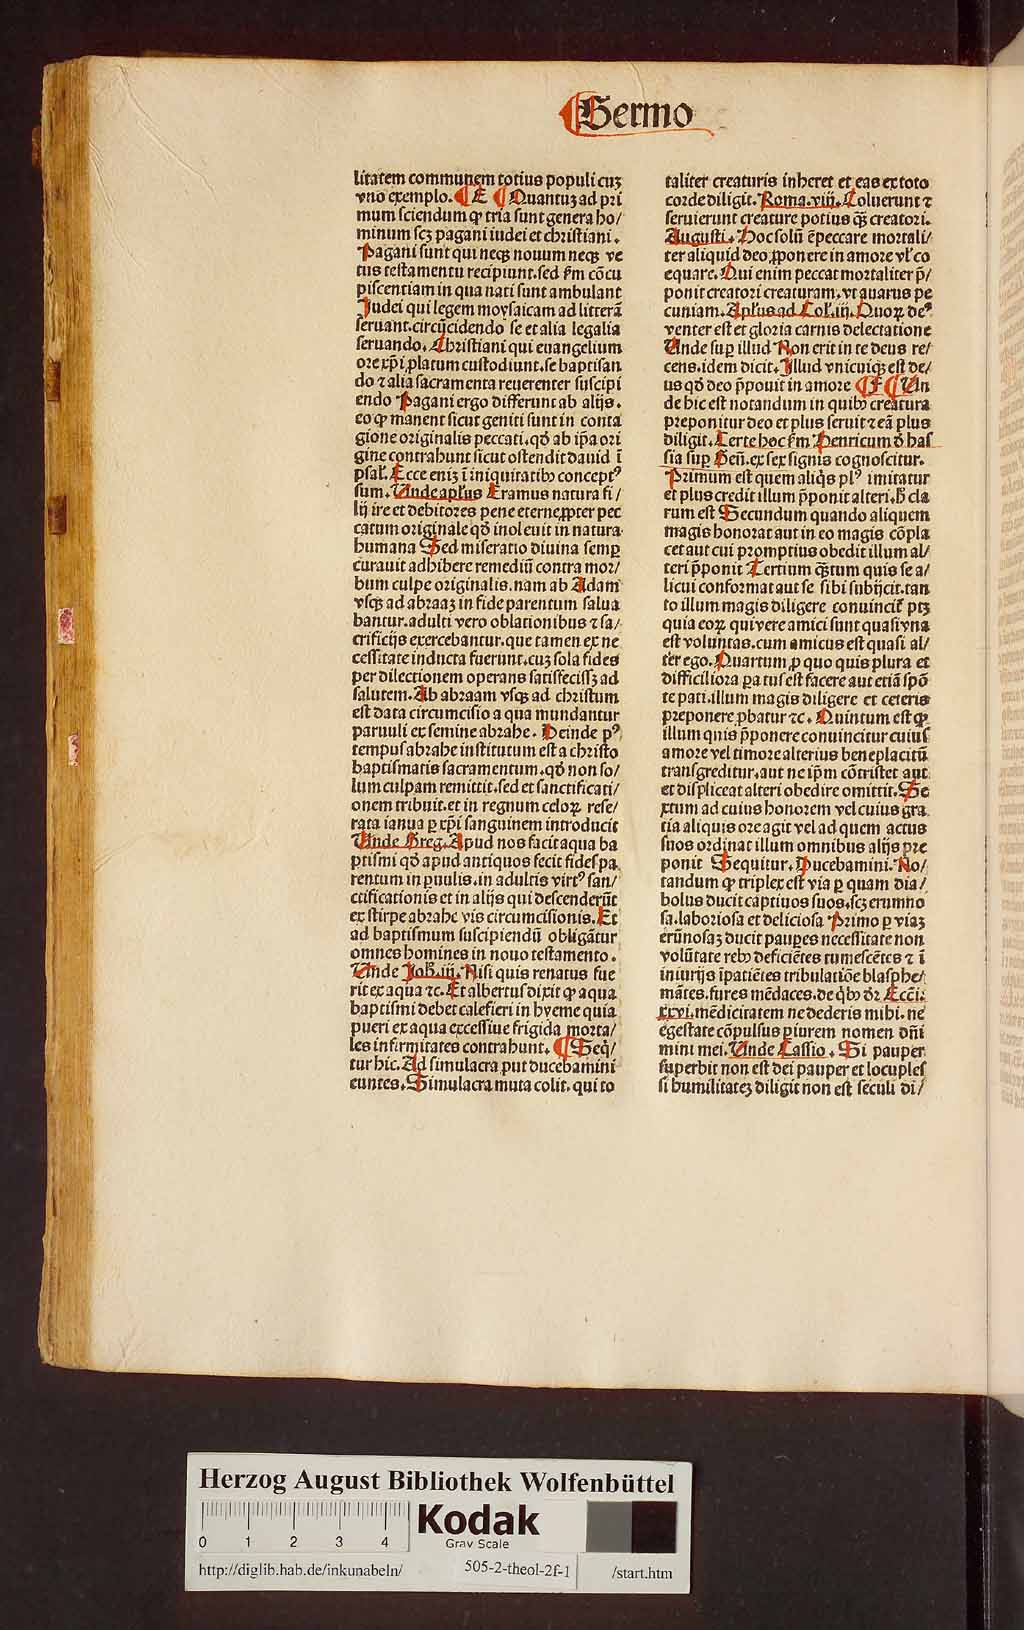 ¶Sermo
litatem communem totius populi cuꝫ
vno exemplo. ¶ E ¶ Quantuꝫ ad pri
mum sciendum ꝙ tria sunt genera ho/
minum scꝫ pagani iudei et christiani.
Pagani sunt qui necꝫ nouum necꝫ ve
tus testamentū recipiunt. sed ẜm cōcu
piscentiam in qua nati sunt ambulant
Judei qui legem moysaicam ad litterā
seruant. circūcidendo se et alia legalia
seruando. Christiani qui euangelium
ore xp̄i ꝓlatum custodiunt. se baptisan
do ⁊ alia sacramenta reuerenter suscipi
endo Pagani ergo differunt ab alijs.
eo ꝙ manent sicut geniti sunt in conta
gione originalis peccati. qd̄ ab ip̄a ori
gine contrahunt sicut ostendit dauid ī
psal̄. Ecce eniꝫ ī iniquitatibꝰ conceptꝰ
sum. Unde apl̄us Eramus natura fi/
lij ire et debitores pene eterne. ꝓpter pec
catum originale qd̄ inoleuit in natura
humana Sed miseratio diuina semꝑ
curauit adhibere remediū contra mor/
bum culpe originalis. nam ab Adam
vsqꝫ ad abraaꝫ in fide parentum salua
bantur. adulti vero oblationibus ⁊ sa/
crificijs exercebantur. que tamen ex ne
cessitate inducta fuerunt. cuꝫ sola fides
per dilectionem operans satisfecissꝫ ad
salutem. Ab abraam vsqꝫ ad christum
est data circumcisio a qua mundantur
paruuli ex semine abrahe. Deinde pꝰ
tempus abrahe institutum est a christo
baptismatis sacramentum. qd̄ non so/
lum culpam remittit. sed et sanctificati/
onem tribuit. et in regnum celoꝝ rese/
rata ianua ꝑ xp̄i sanguinem introducit
Unde Greg. Apud nos facit aqua ba
ptismi qd̄ apud antiquos fecit fides pa
rentum in ꝑuulis. in adultis virtꝰ san/
ctificationis et in alijs qui descenderūt
ex stirpe abrahe vis circumcisionis. Et
ad baptismum suscipiendū obligātur
omnes homines in nouo testamento.
Unde Joh̄. iij. Nisi quis renatus fue
rit ex aqua ⁊c. Et albertus dixit ꝙ aqua
baptismi debet calefieri in hyeme quia
pueri ex aqua excessiue frigida morta/
les infirmitates contrahunt. ¶ Seq̄/
tur hic. Ad simulacra ꝓut ducebamini
euntes. Simulacra muta colit. qui to
taliter creaturis inheret et eas ex toto
corde diligit. Roma. viij. Coluerunt ⁊
seruierunt creature potius qꝫ̄ creatori.
Augusti. Hoc solū ē peccare mortali/
ter aliquid deo ꝓponere in amore vl̓ co
equare. Qui enim peccat mortaliter p̄/
ponit creatori creaturam. vt auarus pe
cuniam. Apl̄us ad Col̓. iij. Quoꝝ deꝰ
venter est et gloria carnis delectatione
Unde suꝑ illud Non erit in te deus re/
cens. idem dicit. Illud vnicuiqꝫ est de/
us qd̄ deo p̄ponit in amore ¶ F ¶ Un
de hic est notandum in quibꝰ creatura
preponitur deo et plus seruit ⁊ eā plus
diligit. Certe hoc ẜm Henricum d̄ has
sia suꝑ Gen̄. ex sex signis cognoscitur.
Primum est quem aliqͥs plꝰ imitatur
et plus credit illum p̄ponit alteri. h̄ cla
rum est Secundum quando aliquem
magis honorat aut in eo magis cōpla
cet aut cui promptius obedit illum al/
teri p̄ponit Tertium qꝫ̄tum quis se a/
licui conformat aut se sibi subijcit. tan
to illum magis diligere conuincit̄ ptꝫ
quia eoꝝ qui vere amici sunt quasi vna
est voluntas. cum amicus est quasi al/
ter ego. Quartum ꝑ quo quis plura et
difficiliora ꝑatus est facere aut etiā spō
te pati. illum magis diligere et ceteris
preponere ꝓbatur ⁊c. Quintum est ꝙ
illum quis p̄ponere conuincitur cuius
amore vel timore alterius beneplacitū
transgreditur. aut ne ip̄m cōtristet aut
et displiceat alteri obedire omittit. Se
xtum ad cuius honorem vel cuius gra
tia aliquis ore agit vel ad quem actus
suos ordinat illum omnibus alijs pre
ponit Sequitur. Ducebamini. No/
tandum ꝙ triplex est via ꝑ quam dia/
bolus ducit captiuos suos. scꝫ erumno
sa. laboriosa et deliciosa Primo ꝑ viaꝫ
erūnosaꝫ ducit pauꝑes necessitate non
volūtate rebꝰ deficiētes tumescētes ⁊ ī
iniurijs īpatiētes tribulatiōe blasphe/
mātes. fures mēdaces. de qͥbꝰ dr̄ Ecc̄i.
xxvi. mēdicitatem ne dederis mihi. ne
egestate cōpulsus ꝑiurem nomen dn̄i
mini mei. Unde Cassio. Si pauper
superbit non est dei pauper et locuples
si humilitateꝫ diligit non est seculi di/
Herzog August Bibliothek Wolfenbüttel
0 1 2 3 4
Kodak
Gray Scale
http://diglib.hab.de/inkunabeln/ 505-2-theol-2f-1 /start.htm